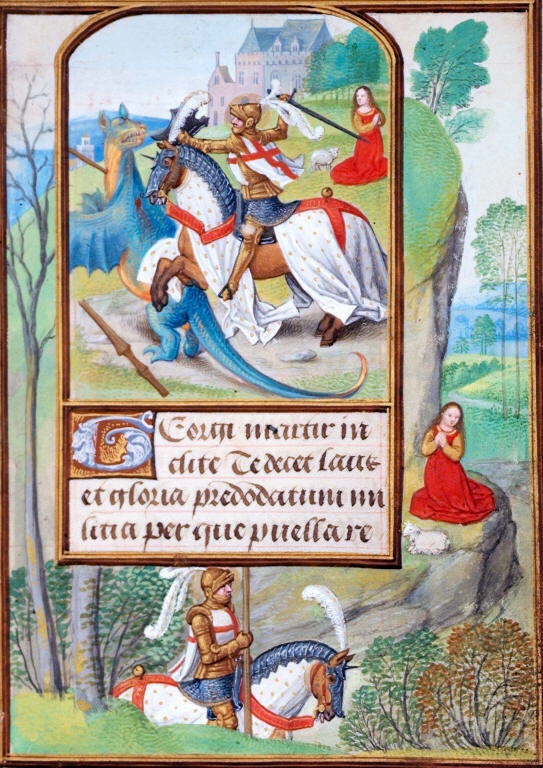 Georgi martir in
clite Te decet laus
et gloria predodatum mi
litia per que puella re